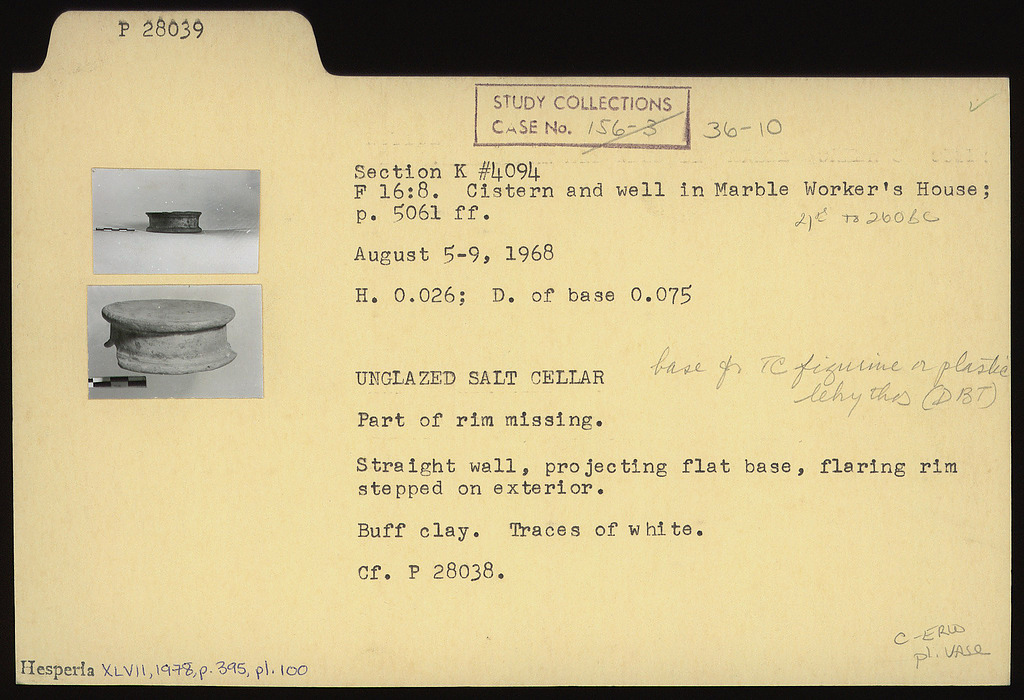 P 28039
STUDY COLLECTIONS
CASE No. 156-3 36-10
Section K #4094
F 16:8. Cistern and well in Marble Worker's House;
p. 5061 ff.
to 260 BC
August 5-9, 1968
H. 0.026; D. of base 0.075
UNGLAZED SALT CELLAR
base for TC figurine or plastic
lekythos (DBT)
Part of rim missing.
Straight wall, projecting flat base, flaring rim
stepped on exterior.
Buff clay. Traces of white.
Cf. P 28038.
C-ERW
pl. VASE
Hesperia XLVII, 1978, p. 395, pl. 100